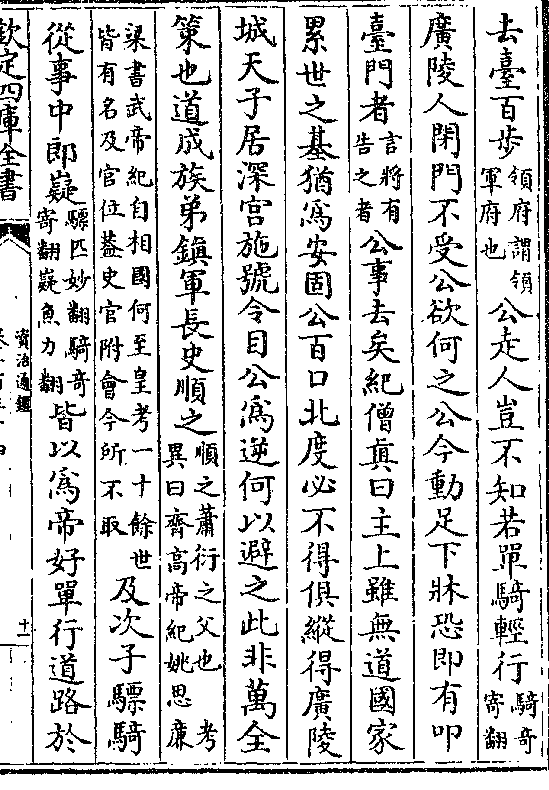 去臺百步領府謂領軍府也公走人豈不知若單騎輕行騎奇寄翻
廣陵人閉門不受公欲何之公今動足下牀恐即有叩
臺門者言將有告之者公事去矣紀僧眞曰主上雖無道國家
累世之基猶爲安固公百口北度必不得俱縱得廣陵
城天子居深宫施號令目公爲逆何以避之此非萬全
策也道成族弟鎭軍長史順之順之蕭衍之父也考異曰齊高帝紀姚思廉
梁書武帝紀自相國何至皇考一十餘世皆有名及官位葢史官附會今所不取及次子驃騎
從事中郎嶷驃匹妙翻騎奇寄翻嶷魚力翻皆以爲帝好單行道路於
欽定四庫全書
資治通鑑
十一